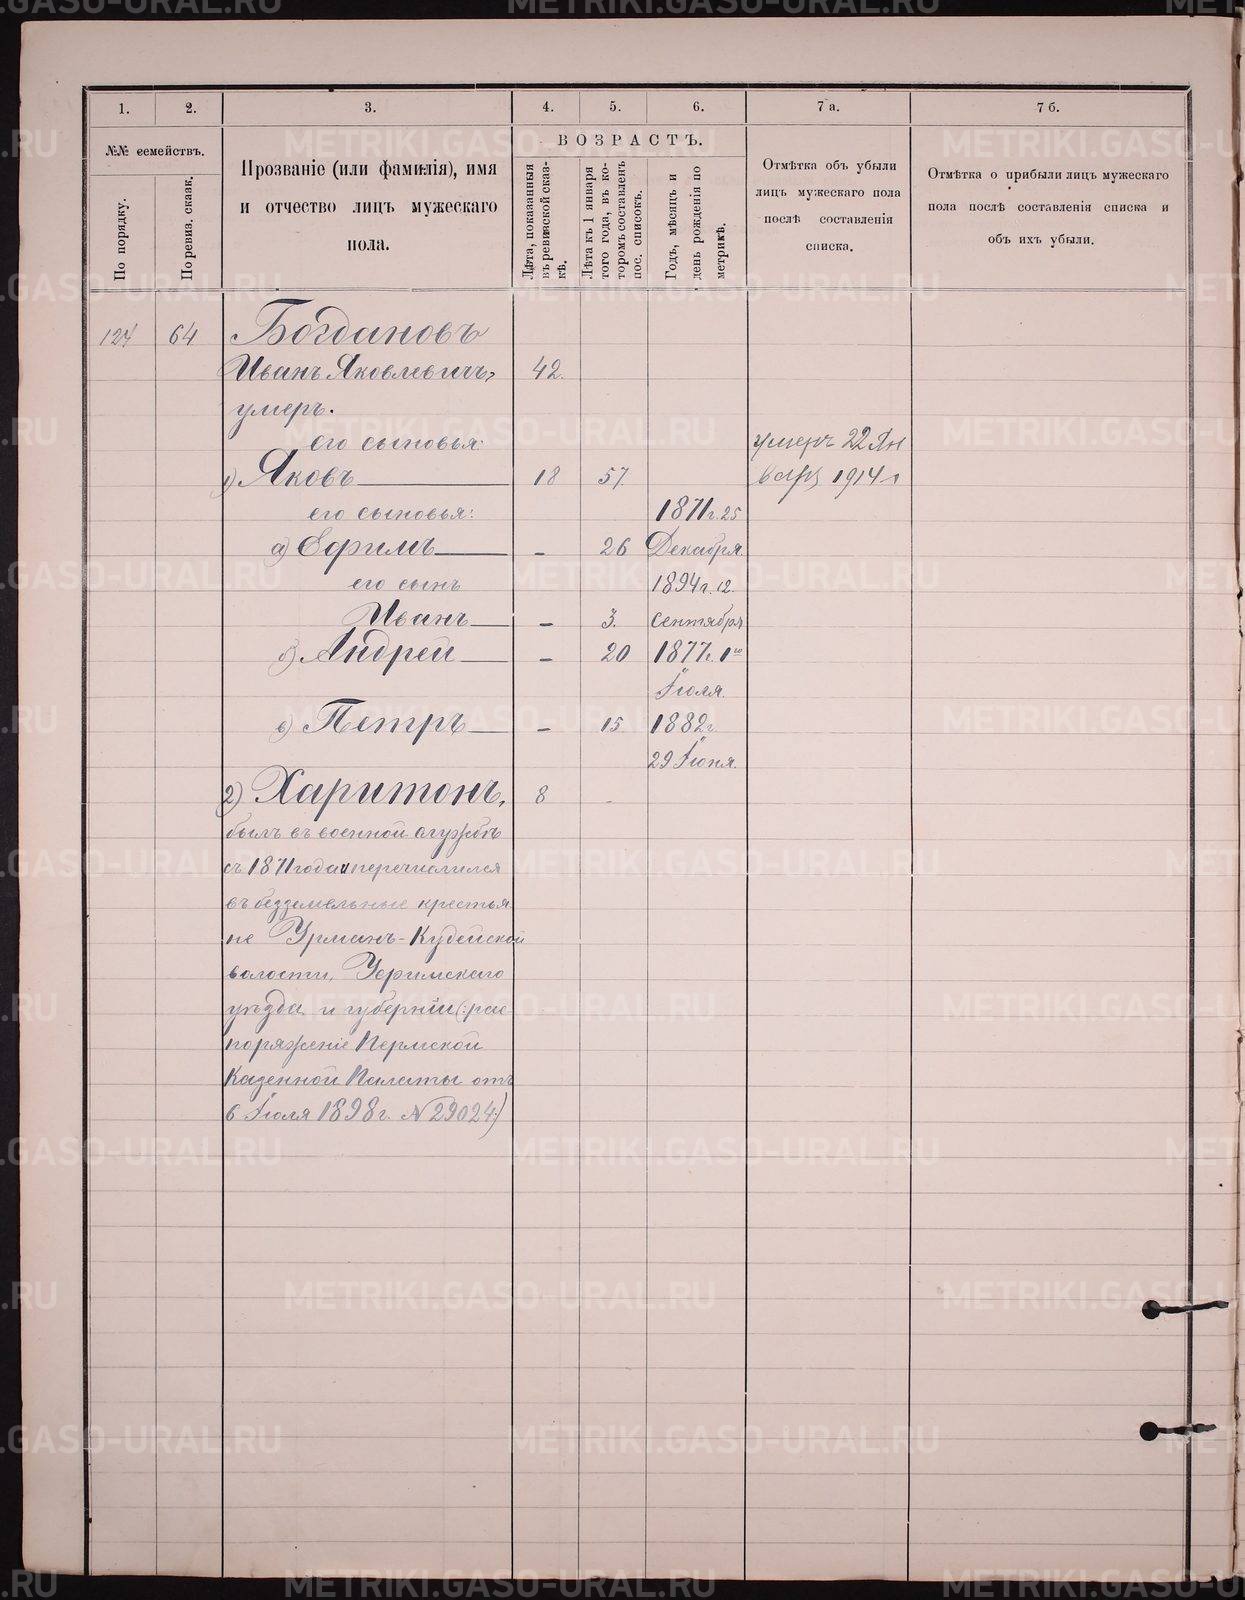 1.
2.
3.
4.
5.
6.
7 а.
7 б.
№№ семействъ.
По порядку.
По ревиз. сказк.
Прозваніе (или фамилія), имя
и отчество лицъ мужескаго
пола.
ВОЗРАСТЪ.
Лѣта, показанныя
въ ревизской сказ-
кѣ.
Лѣта къ 1 января
того года, въ ко-
торомъ составленъ
пос. списокъ.
Годъ, мѣсяцъ и
день рожденія по
метрикѣ.
Отмѣтка объ убыли
лицъ мужескаго пола
послѣ составленія
списка.
Отмѣтка о прибыли лицъ мужескаго
пола послѣ составленія списка и
объ ихъ убыли.
127 64 Богдановъ
Иванъ Яковлевичъ, 42.
умеръ.
его сыновья:
умеръ 22 Ян
1) Яковъ 18 57.
варя 1914 г
его сыновья: 1871 г. 25
а) Ефимъ - 26 Декабря.
его сынъ 1894 г. 12.
Иванъ - 3. Сентября
б) Андрей - 20 1877 г. 1го
Іюля.
в) Петръ - 15 1882 г.
29 Іюня.
2) Харитонъ, 8 -
былъ въ военной службѣ
съ 1871 года и перечислился
въ безземельные крестья
не Урманъ-Кудейской
волости, Уфимскаго
уѣзда и губерніи (: рас-
поряженіе Пермской
Казенной Палаты отъ
6 Іюля 1898 г. № 29024 :)
METRIKI.GASO-URAL.RU